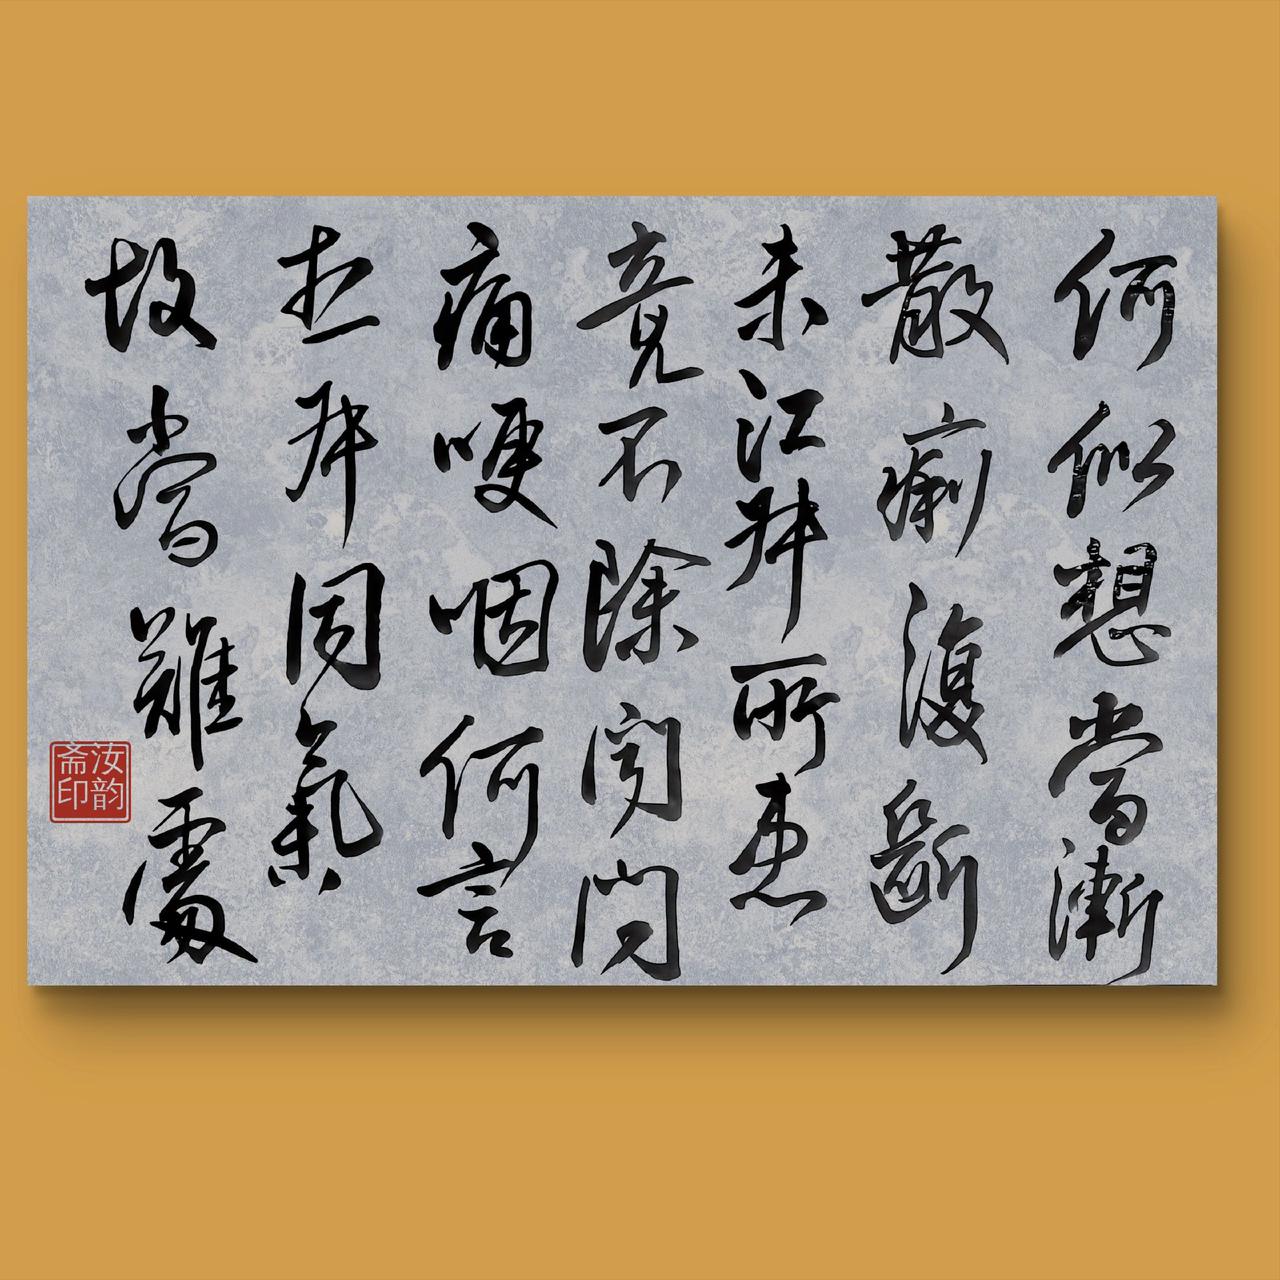 何似想當漸
散痢復斷
未江所患
竟不除
痛哽咽何言
因氣
故當難處
汝韵
斋印